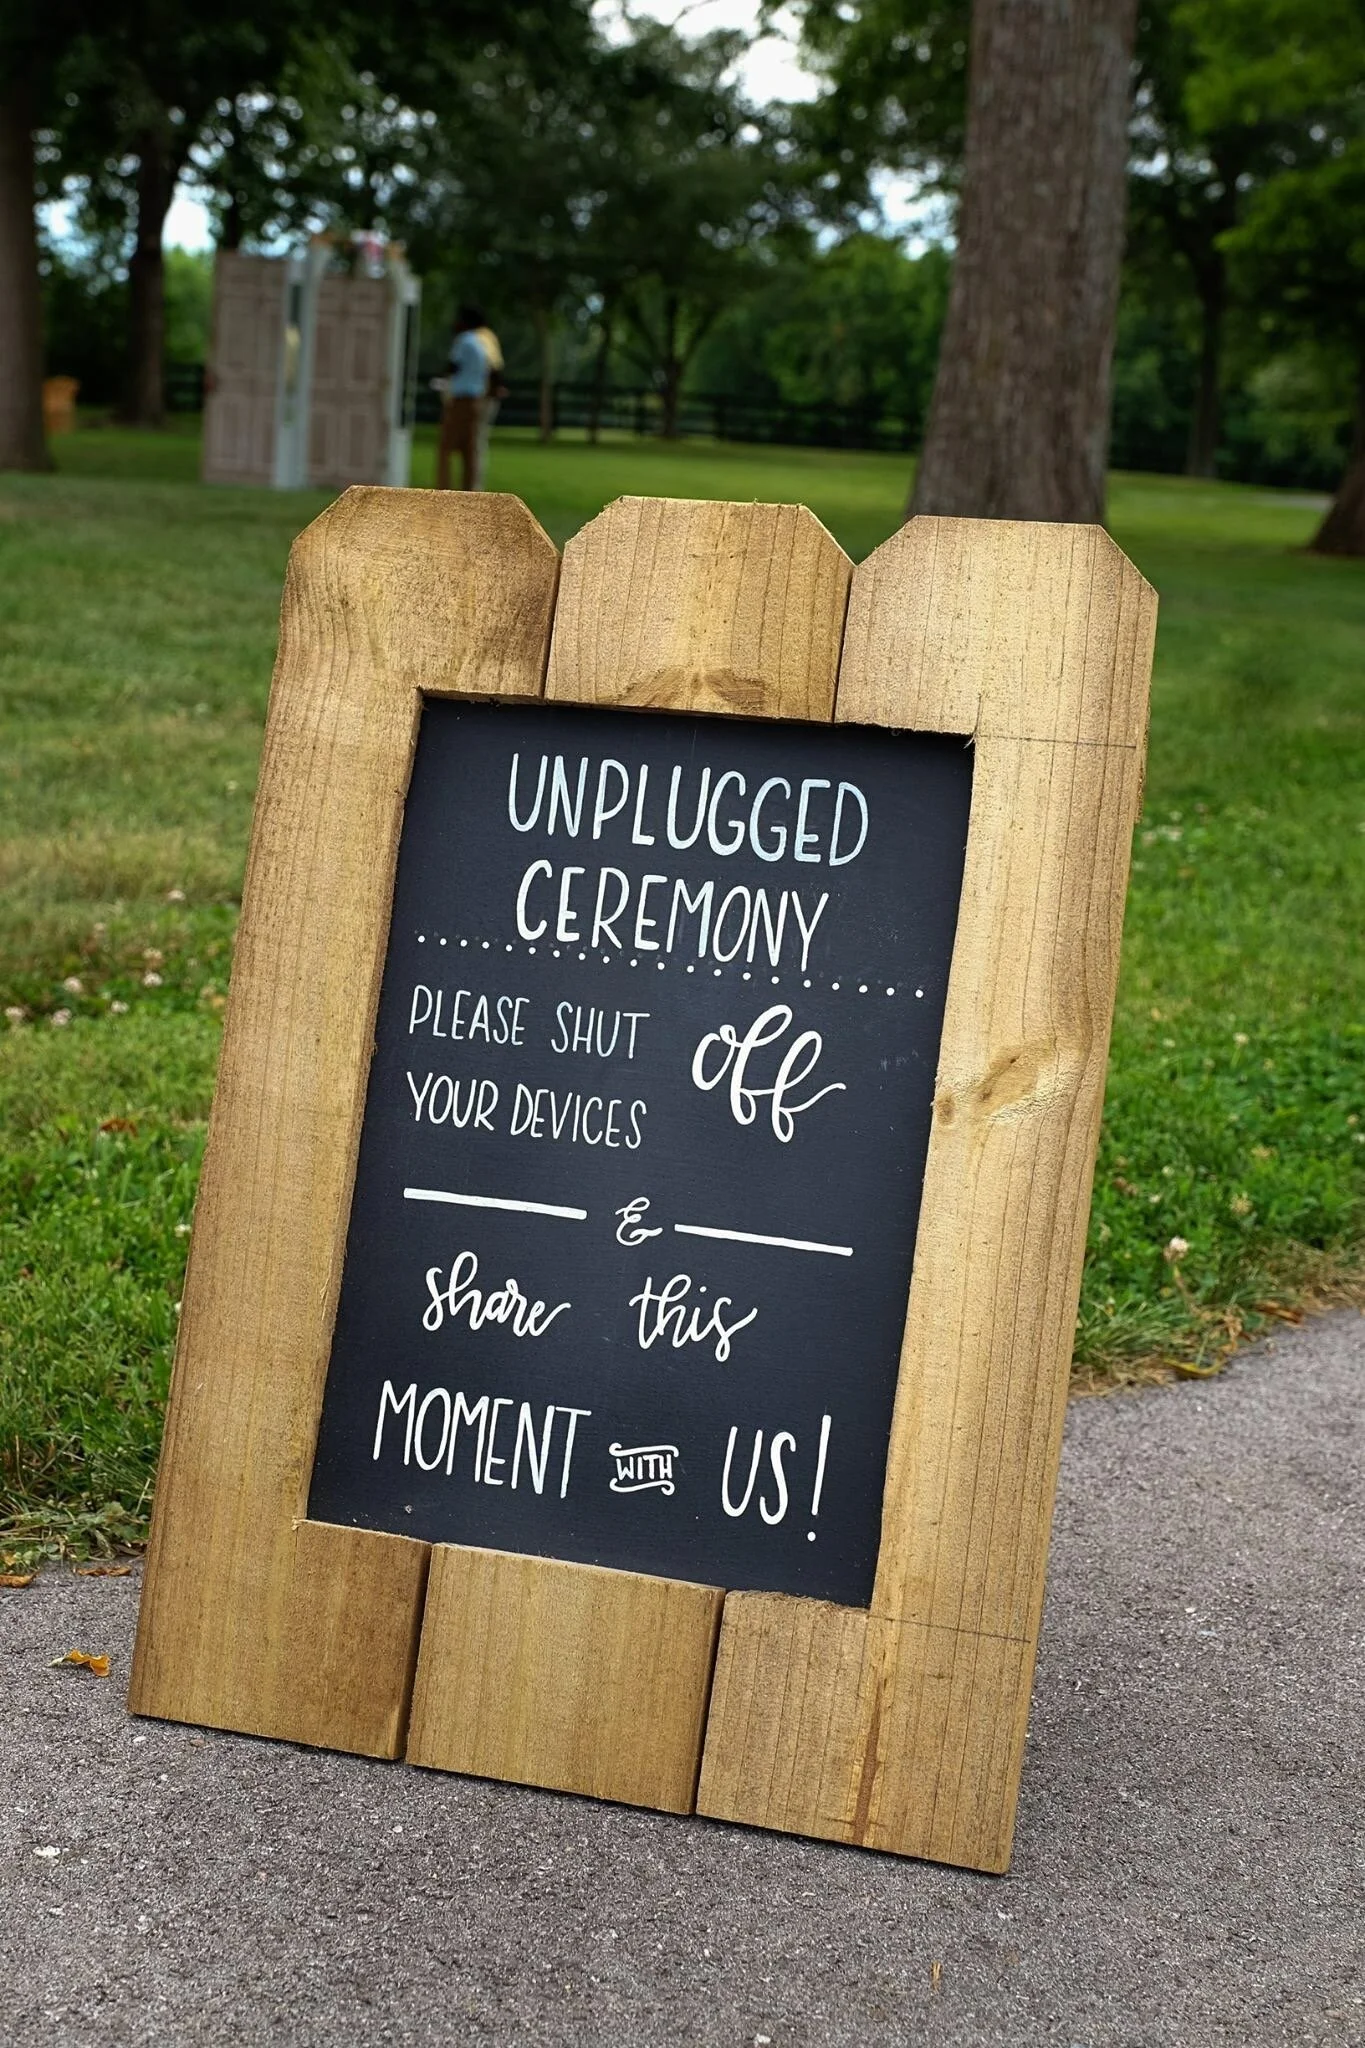 UNPLUGGED
CEREMONY
PLEASE SHUT off
YOUR DEVICES
&
share this
MOMENT WITH US!